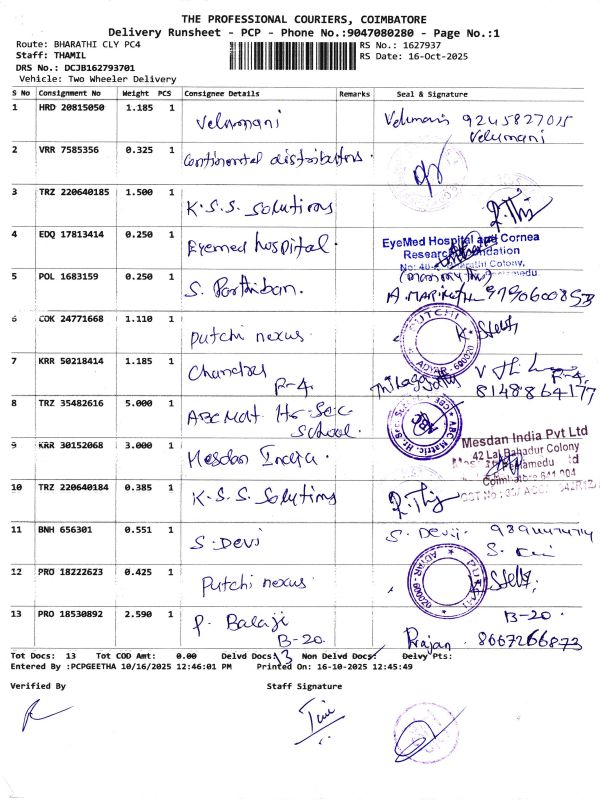 THE PROFESSIONAL COURIERS, COIMBATORE
Delivery Runsheet - PCP - Phone No.:9047080280 - Page No.:1
Route: BHARATHI CLY PC4
RS No.: 1627937
Staff: THAMIL
RS Date: 16-Oct-2025
DRS No.: DCJB162793701
Vehicle: Two Wheeler Delivery
S No Consignment No Weight PCS Consignee Details Remarks Seal & Signature
1 HRD 20815050 1.185 1 Velumani Velumani 9245827015
Velumani
2 VRR 7585356 0.325 1 Continental distributors.
3 TRZ 220640185 1.500 1 K.S.S. Solutions
4 EDQ 17813414 0.250 1 Eyemed hospital. EyeMed Hospital and Cornea
Research Foundation
Colony,
5 POL 1683159 0.250 1 S. Parthiban. 9790600853
6 COK 24771668 1.110 1 Putchi nexus. PUTCHI
ADYAR - 600020
7 KRR 50218414 1.185 1 Chandra
R-4. R-4.
8148864177
8 TRZ 35482616 5.000 1 ABC Mat. Hr. Sec
School. ABC Matric. Hr.
9 KRR 30152068 3.000 1 Mesdan India. Mesdan India Pvt Ltd
42 Lal Bahadur Colony
Coimbatore 641 004
10 TRZ 220640184 0.385 1 K.S.S. Solutions
11 BNH 656301 0.551 1 S. Devi S. Devi.
12 PRO 18222623 0.425 1 Putchi nexus. ADYAR - 600020
13 PRO 18530892 2.590 1 P. Balaji B-20.
B-20. Rajan. 8667266873
Tot Docs: 13 Tot COD Amt: 0.00 Delvd Docs: 13 Non Delvd Docs: Delvy Pts:
Entered By :PCPGEETHA 10/16/2025 12:46:01 PM Printed On: 16-10-2025 12:45:49
Verified By Staff Signature